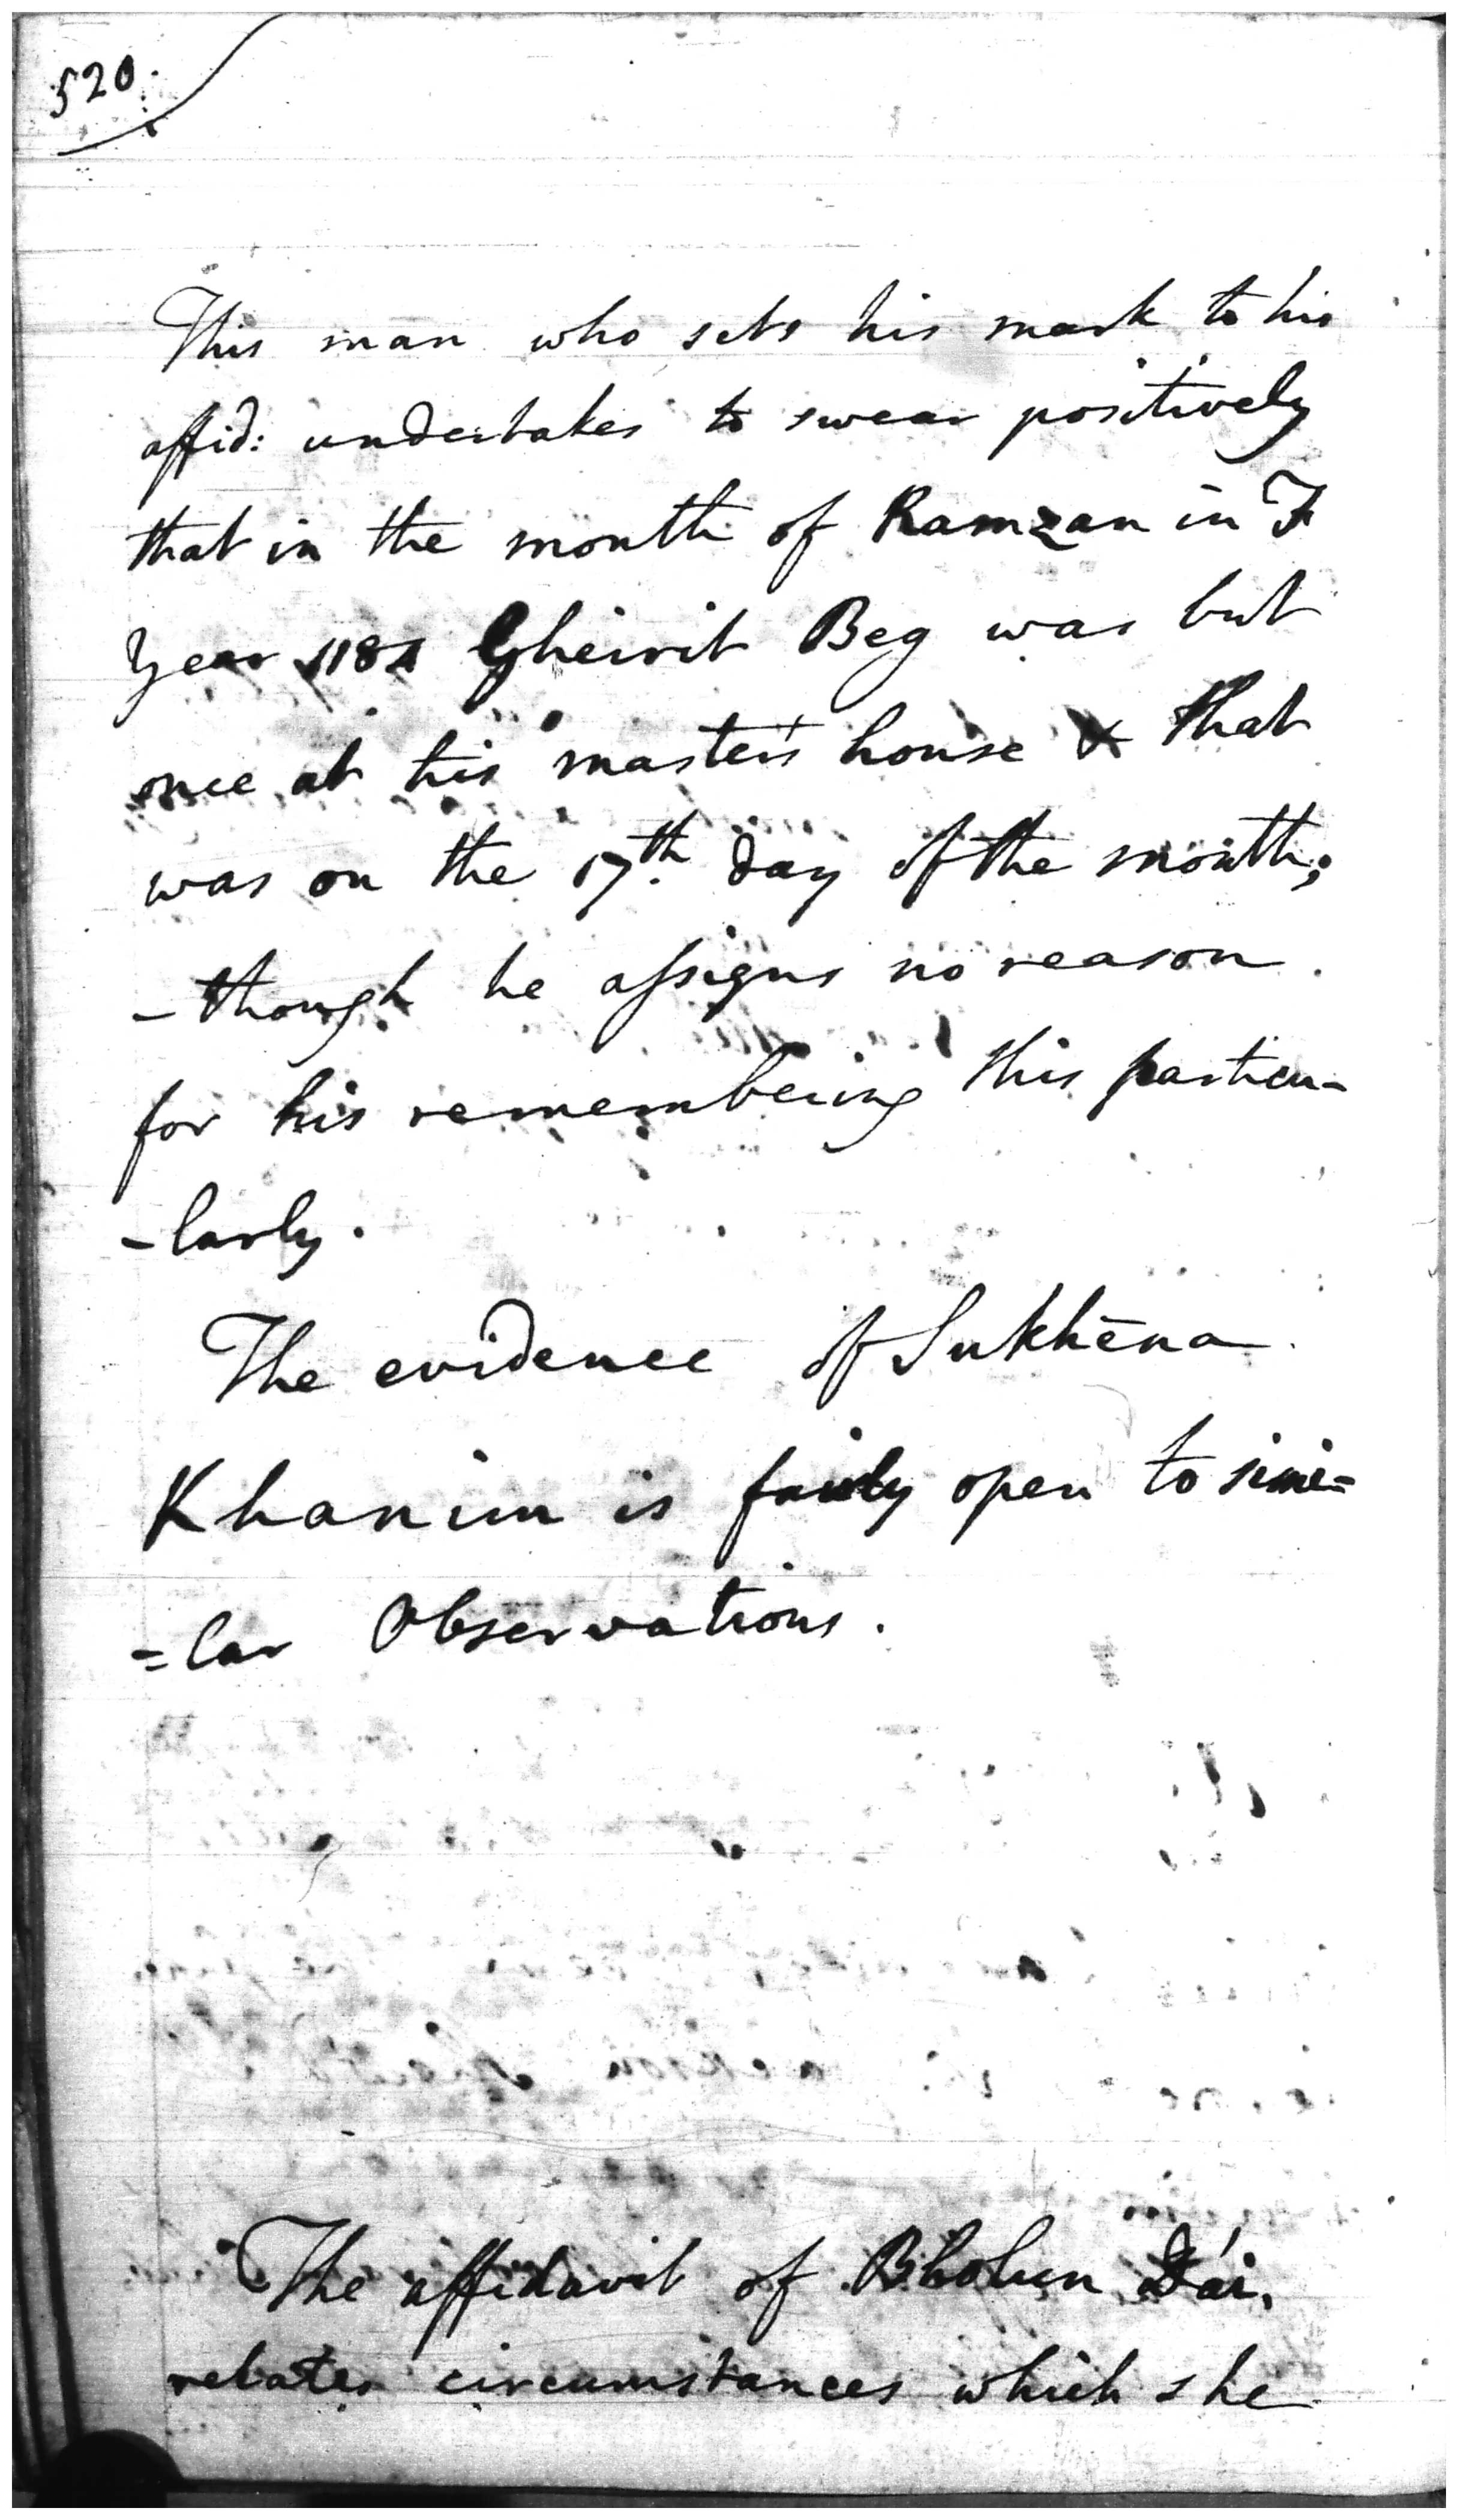 520.
This man who sets his mark to his
affid: undertakes to swear positively
that in the month of Ramzan in
Year Gheirit Beg was but
once at his master's house & that
was on the 17th day of the month;
- though he assigns no reason
for his remembering this particu-
-larly.
The evidence of Sukhēna
Khanim is fairly open to simi=
=lar Observations.
The affidavit of Bholun Dái,
relates circumstances which she